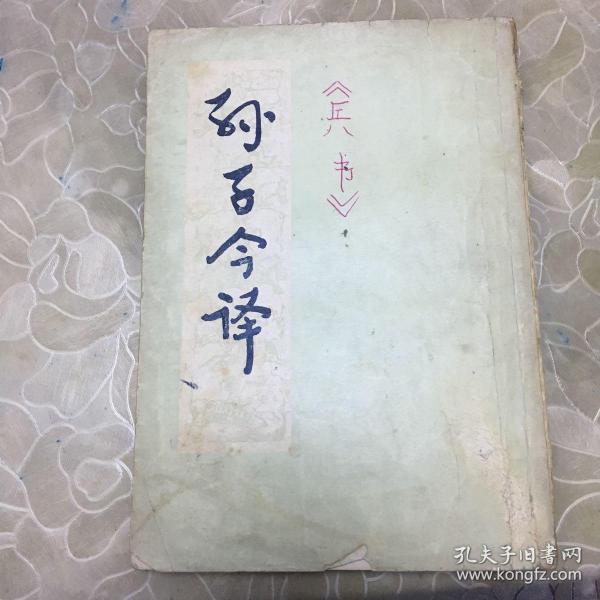 孙子今译
《兵书》
孔夫子旧書网
www.kongfz.com